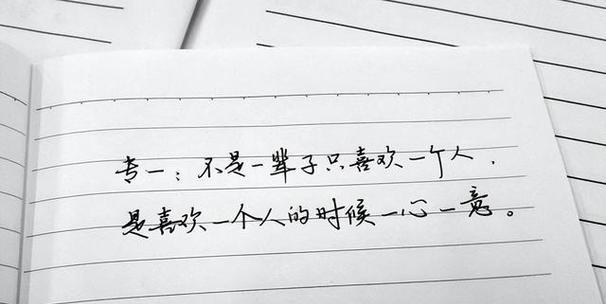 专一：不是一辈子只喜欢一个人，
是喜欢一个人的时候一心一意。